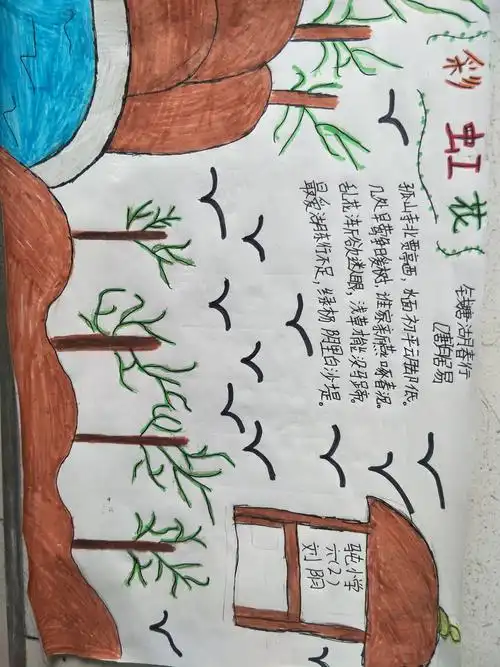 彩虹花
钱塘湖春行
[唐]白居易
孤山寺北贾亭西，水面初平云脚低。
几处早莺争暖树，谁家新燕啄春泥。
乱花渐欲迷人眼，浅草才能没马蹄。
最爱湖东行不足，绿杨阴里白沙堤。
小学
六(2)
刘阳